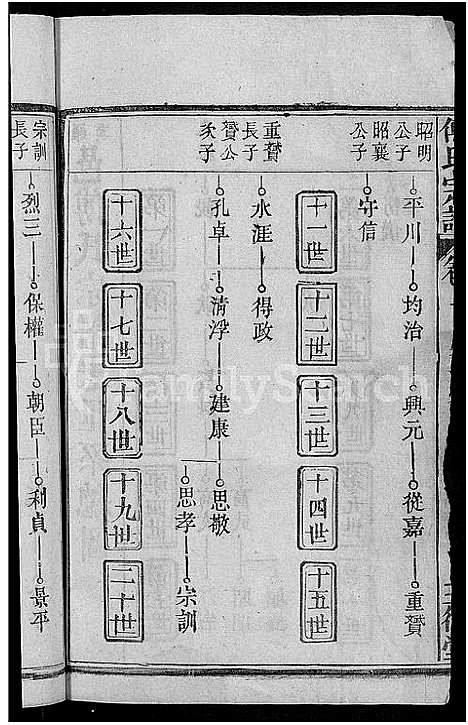 昭明公子
平川 均治 興元 從嘉 重贊
昭襄公子
守信
十一世 十二世 十三世 十四世 十五世
重贊長子
水涯 得政
贊公次子
孔卓 清浮 建康 思敬
思孝 宗訓
十六世 十七世 十八世 十九世 二十世
宗訓長子
烈三 保權 朝臣 利貞 景平
FamilySearch